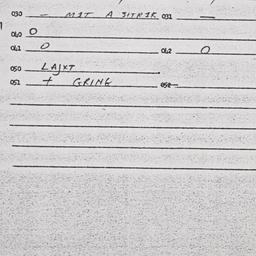 030 - MIT A STRIK 031 -
040 O
041 O 042 O
050 LAJXT
051 + GRING 052 -